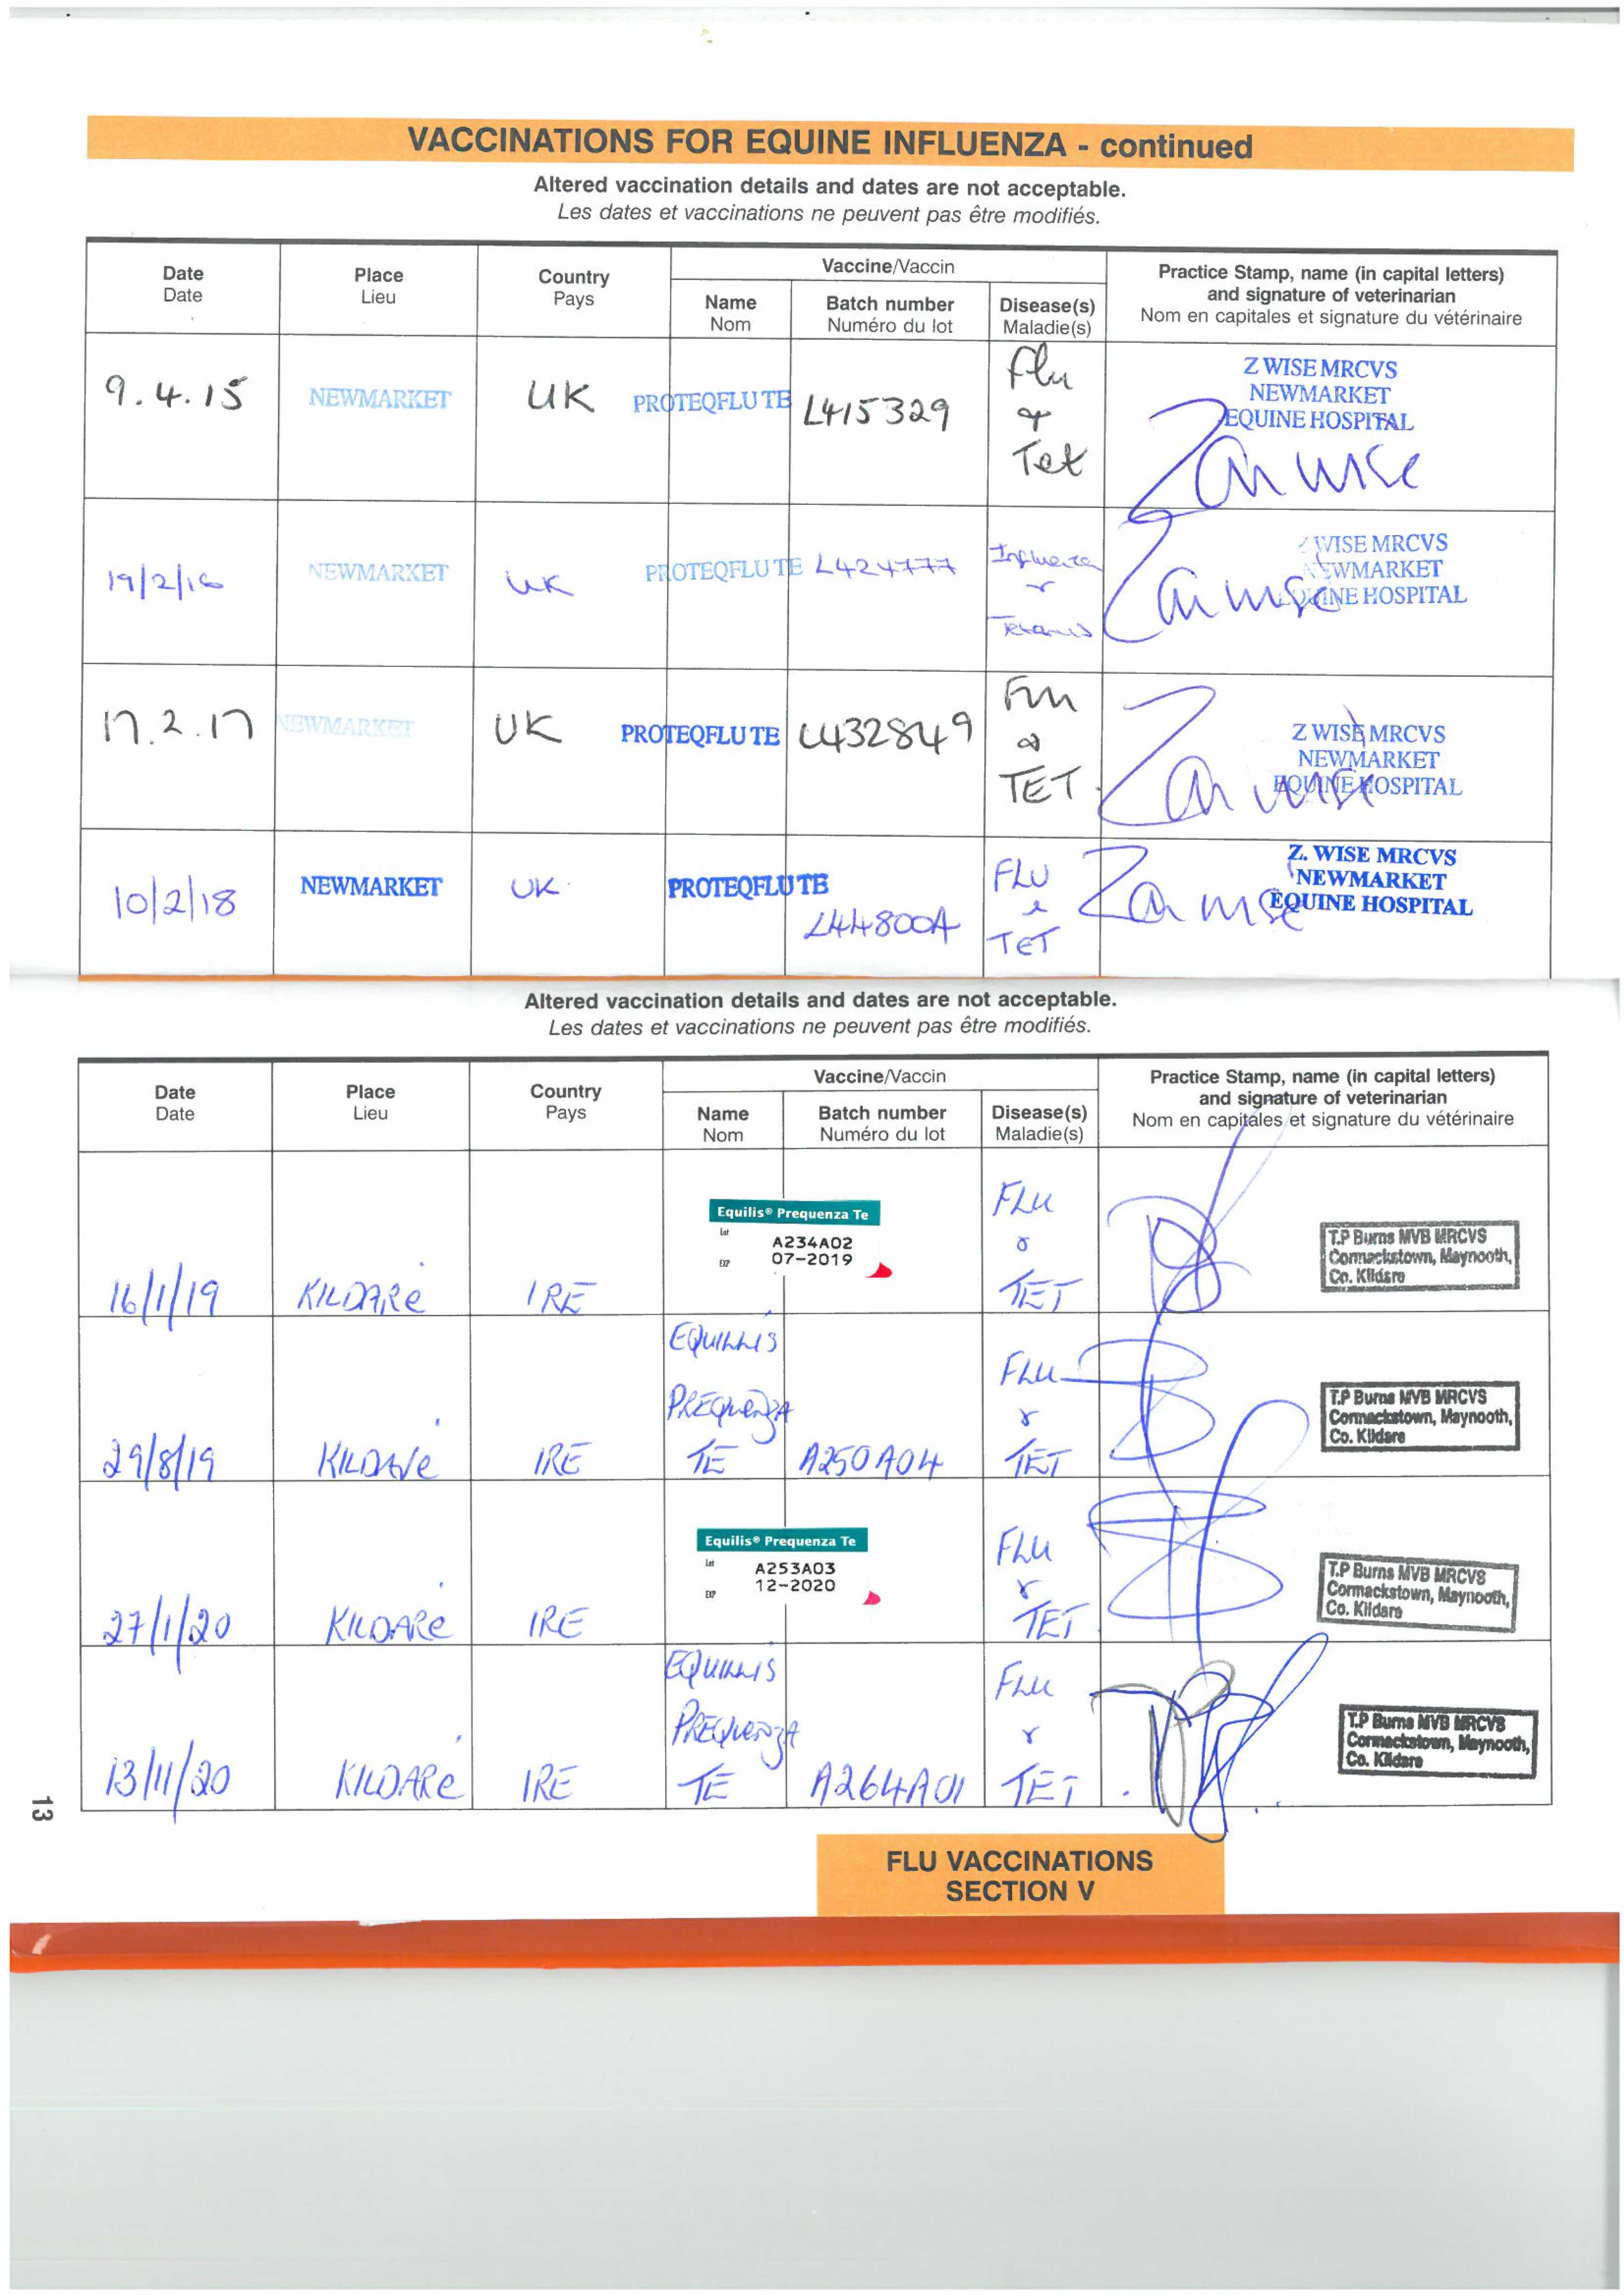 VACCINATIONS FOR EQUINE INFLUENZA - continued
Altered vaccination details and dates are not acceptable.
Les dates et vaccinations ne peuvent pas être modifiés.
Date Place Country Vaccine/Vaccin Practice Stamp, name (in capital letters)
Date Lieu Pays Name Batch number Disease(s) and signature of veterinarian
Nom Numéro du lot Maladie(s) Nom en capitales et signature du vétérinaire
9.4.15 NEWMARKET UK PROTEQFLU TE L415329 Flu + Tet
Z WISE MRCVS
NEWMARKET
EQUINE HOSPITAL
19/2/16 NEWMARKET UK PROTEQFLU TE L424777 Influenza + Tetanus
Z WISE MRCVS
NEWMARKET
EQUINE HOSPITAL
17.2.17 NEWMARKET UK PROTEQFLU TE L432849 Flu & TET.
Z WISE MRCVS
NEWMARKET
EQUINE HOSPITAL
10/2/18 NEWMARKET UK PROTEQFLU TE L44800A FLU & TET
Z. WISE MRCVS
NEWMARKET
EQUINE HOSPITAL
Altered vaccination details and dates are not acceptable.
Les dates et vaccinations ne peuvent pas être modifiés.
Date Place Country Vaccine/Vaccin Practice Stamp, name (in capital letters)
Date Lieu Pays Name Batch number Disease(s) and signature of veterinarian
Nom Numéro du lot Maladie(s) Nom en capitales et signature du vétérinaire
Equilis® Prequenza Te
Lot A234A02
EXP 07-2019
16/1/19 KILDARE IRE FLU & TET
T.P Burns MVB MRCVS
Cormackstown, Maynooth,
Co. Kildare
29/8/19 KILDARE IRE EQUILLIS PREQUENZA TE A250A04 FLU & TET
T.P Burns MVB MRCVS
Cormackstown, Maynooth,
Co. Kildare
Equilis® Prequenza Te
Lot A253A03
EXP 12-2020
27/1/20 KILDARE IRE FLU & TET
T.P Burns MVB MRCVS
Cormackstown, Maynooth,
Co. Kildare
13/11/20 KILDARE IRE EQUILLIS PREQUENZA TE A264A01 FLU & TET
T.P Burns MVB MRCVS
Cormackstown, Maynooth,
Co. Kildare
13
FLU VACCINATIONS
SECTION V